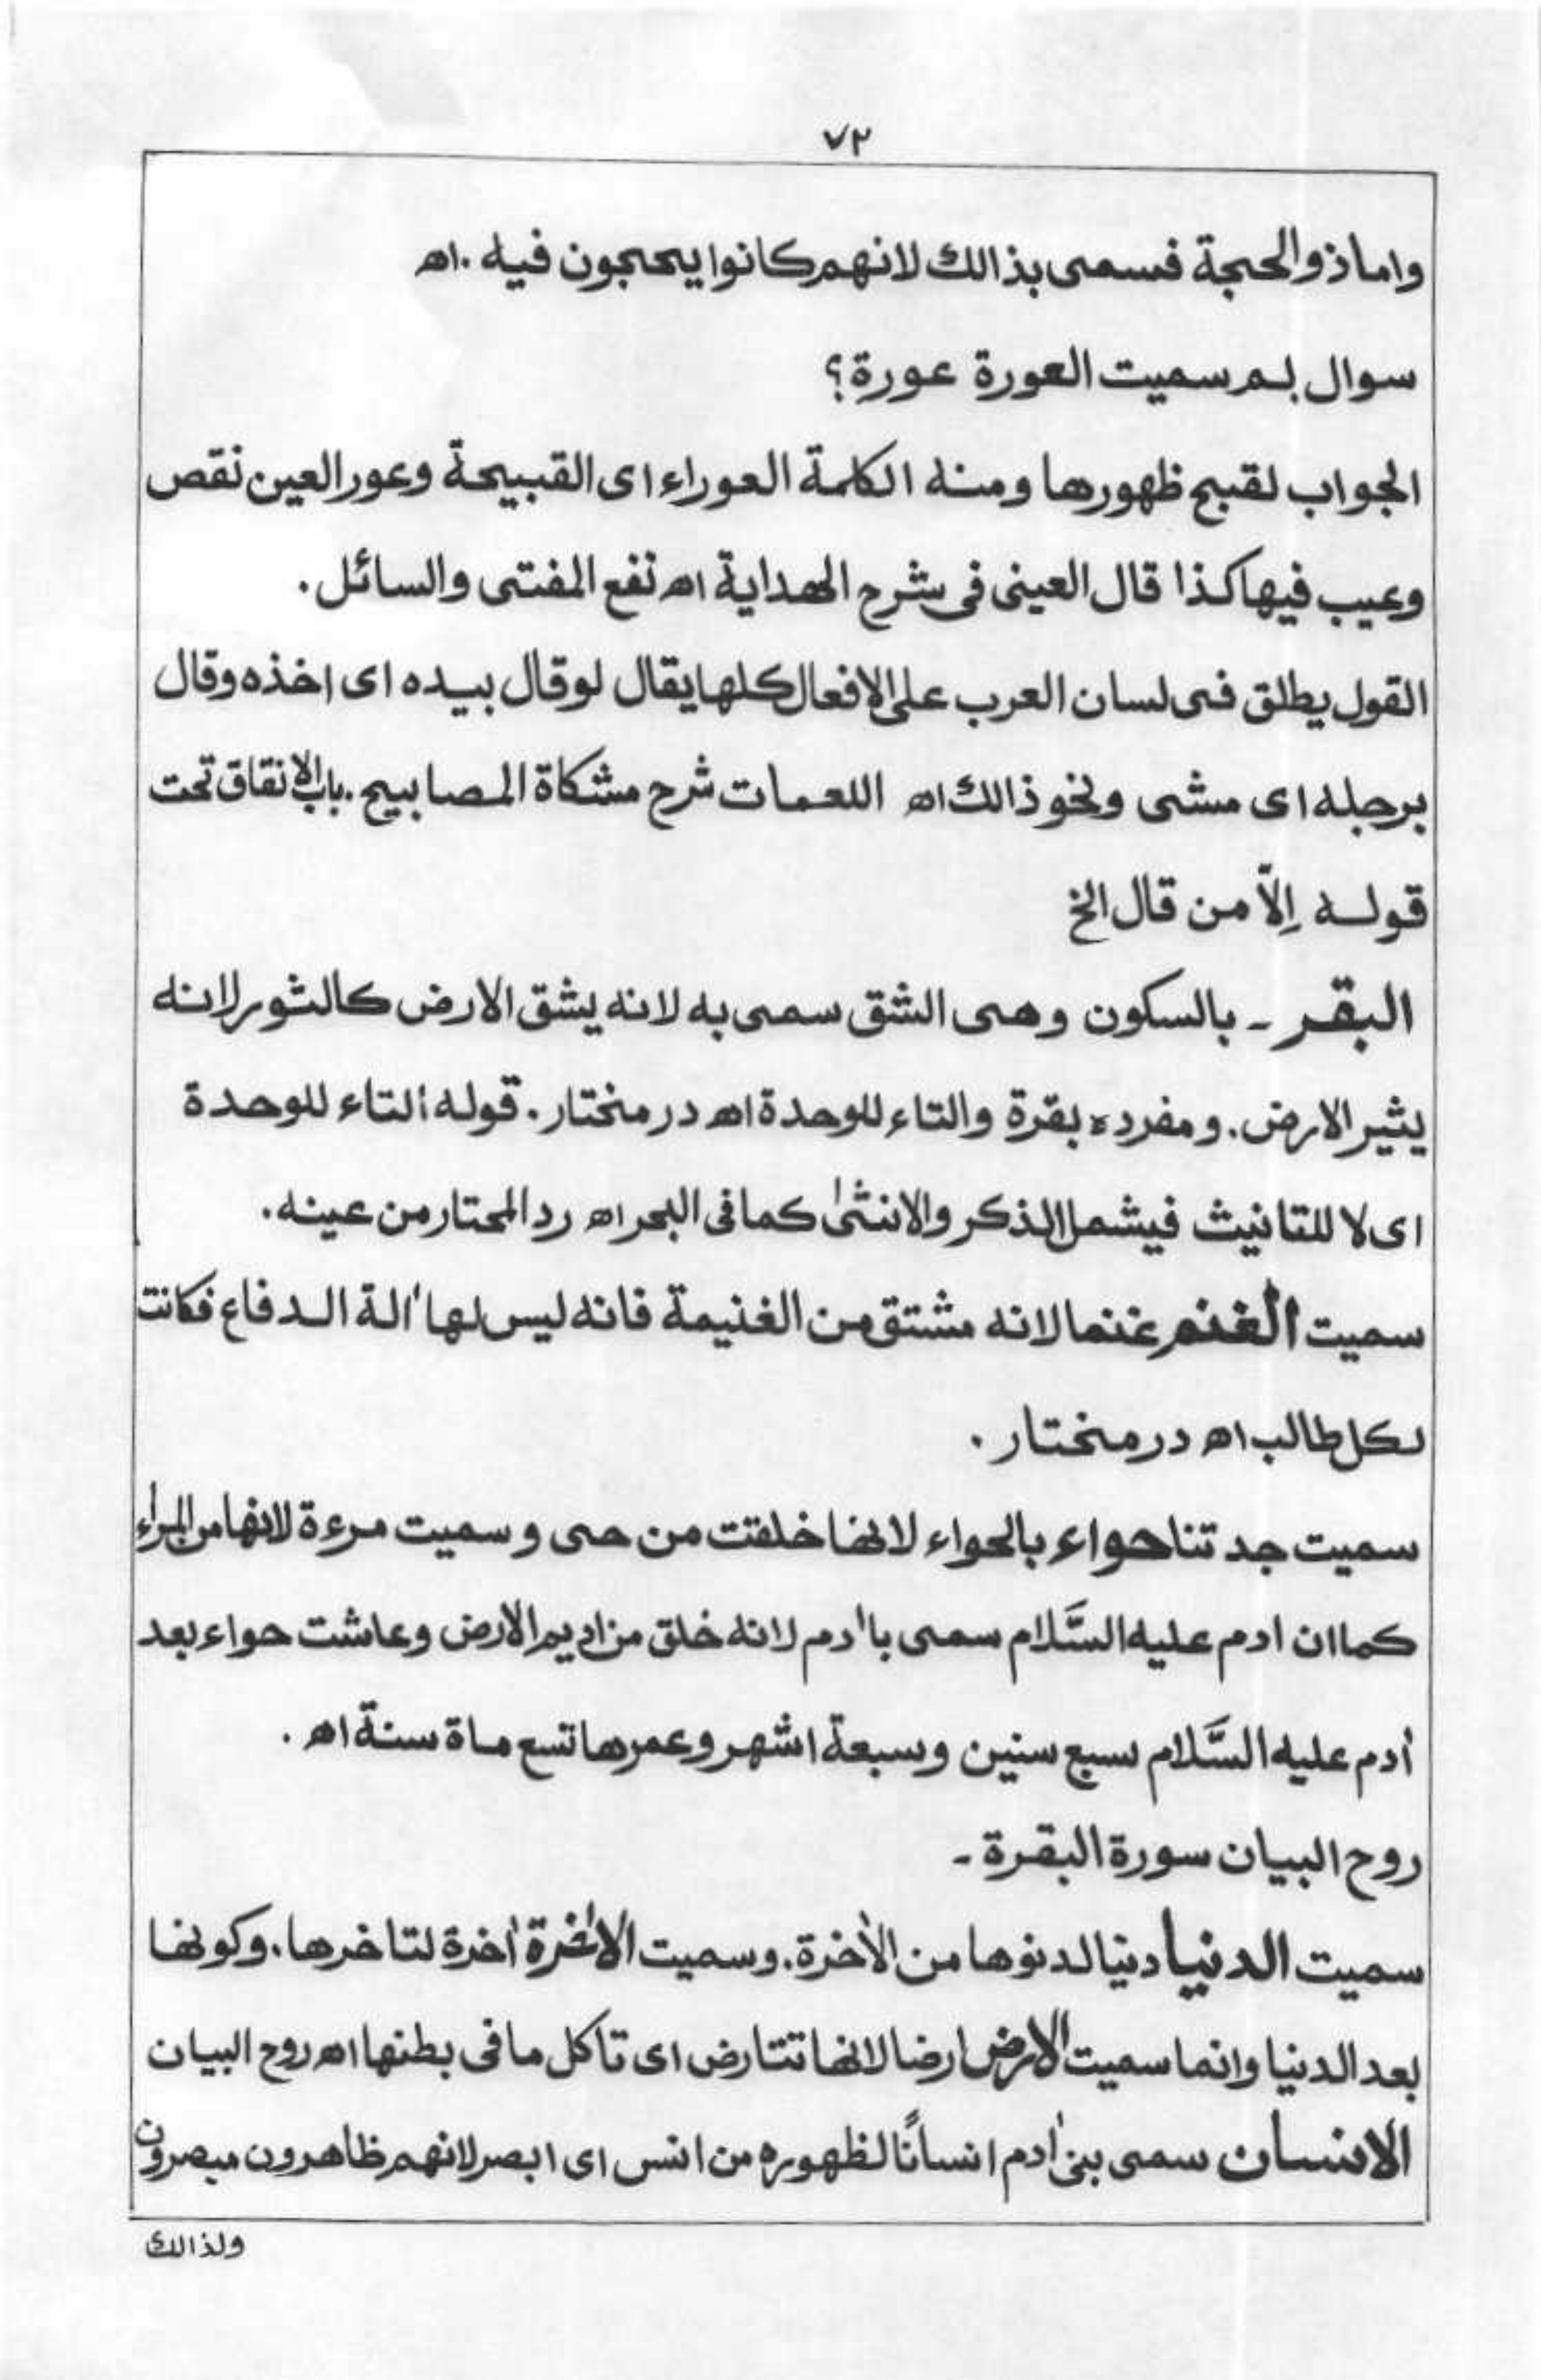 ٧٢
واما ذوالحجة فسمى بذالك لانهم كانوا يحجون فيه . اھ
سوال لم سميت العورة عورة؟
الجواب لقبح ظهورها ومنه الكلمة العوراء اى القبيحة وعور العين نقص
وعيب فيها كذا قال العينى فى شرح الهداية اھ نفع المفتى والسائل .
القول يطلق فى لسان العرب على الافعال كلها يقال لو قال بيده اى اخذه وقال
برجله اى مشى ونحو ذالك اھ اللعمات شرح مشكاة المصابيح . باب الانفاق تحت
قوله اِلّا من قال الخ
البقر ـ بالسكون وهى الشق سمى به لانه يشق الارض كالثور لانه
يثير الارض . ومفرده بقرة والتاء للوحدة اھ در منختار . قوله التاء للوحدة
اى لا للتانيث فيشمل الذكر والانثىٰ كما فى البحر اھ رد المحتار من عينه .
سميت الغنم غنما لانه مشتق من الغنيمة فانه ليس لها اٰلة الدفاع فكانت
لكل طالب اھ در منختار .
سميت جدتنا حواء بالحواء لانها خلقت من حى وسميت مرءة لانها من المراء
كما ان ادم عليه السَّلام سمى باٰدم لانه خلق من اديم الارض وعاشت حواء بعد
اٰدم عليه السَّلام سبع سنين وسبعة اشهر وعمرها تسع ماة سنة اھ .
روح البيان سورة البقرة ـ
سميت الدنيا دنيا لدنوها من الاٰخرة . وسميت الاٰخرة اٰخرة لتاخرها . وكونها
بعد الدنيا وانما سميت الارض ارضا لانها تتارض اى تاكل ما فى بطنها اھ روح البيان
الانسان سمى بنى اٰدم انسانًا لظهوره من انس اى ابصر لانهم ظاهرون مبصرون
ولذالك